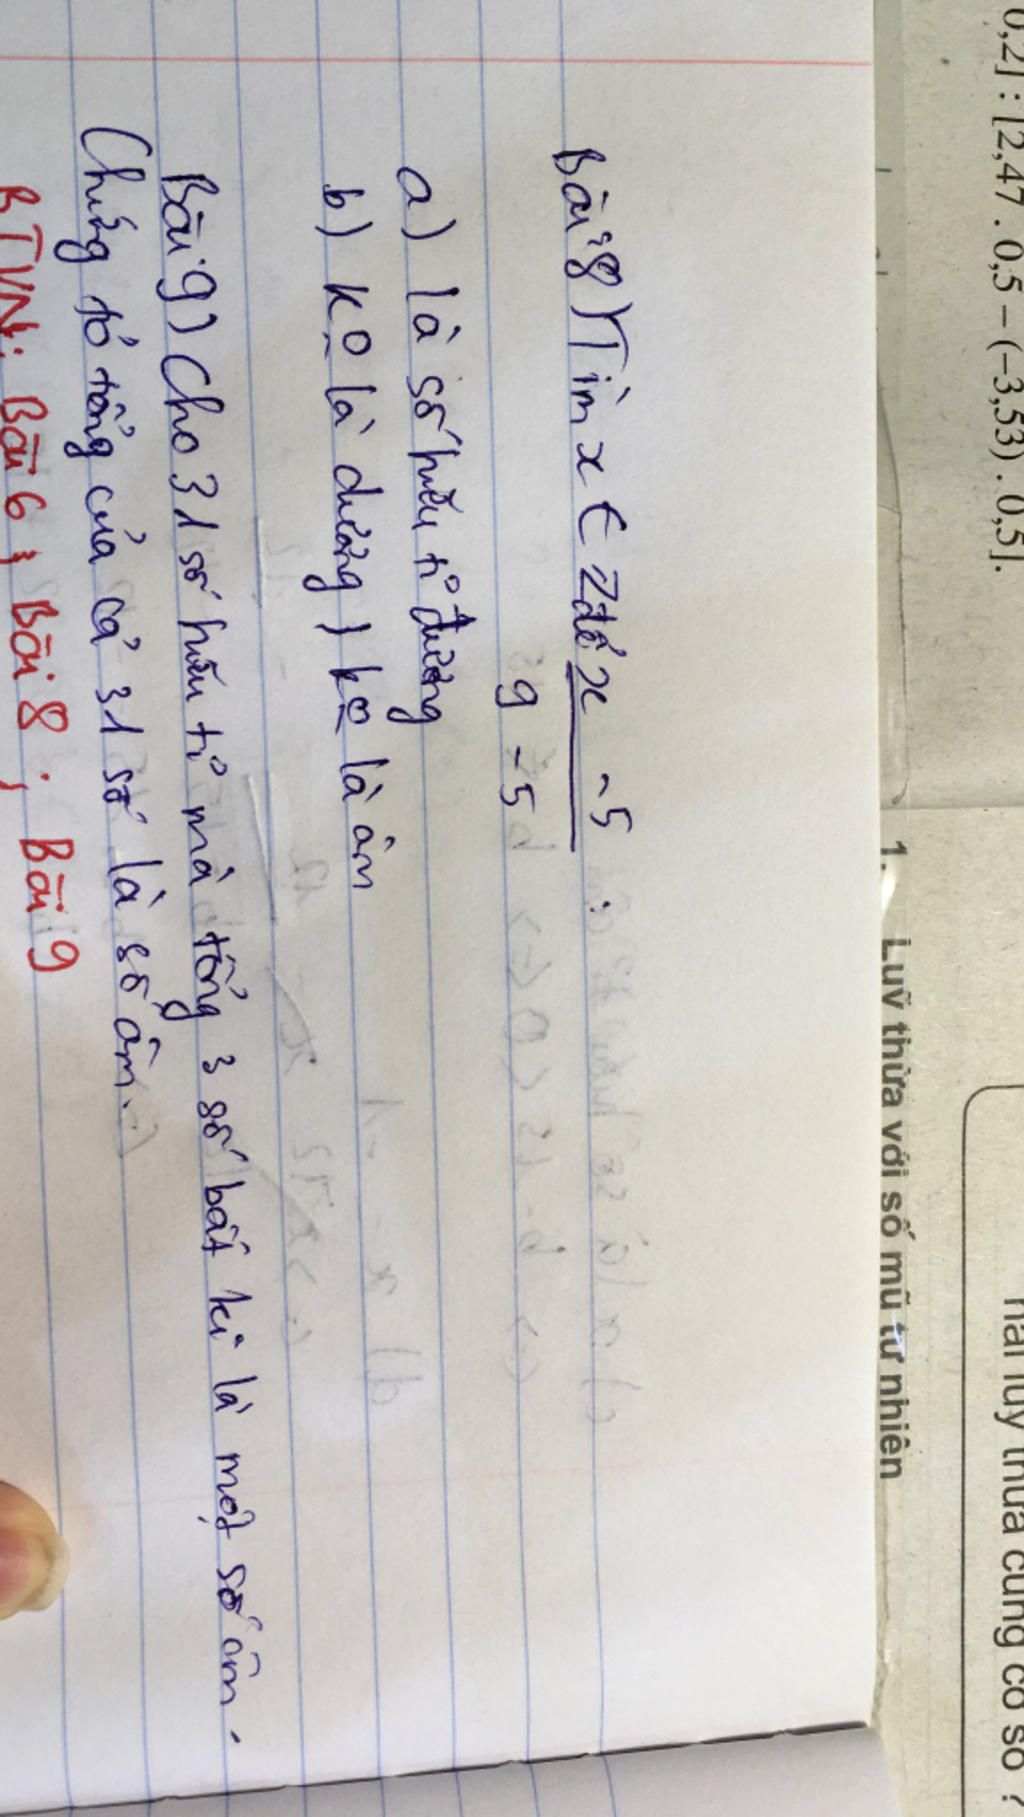 0,2] : [2,47 . 0,5 – (–3,53) . 0,5].
hai luỹ thừa cùng cơ số ?
1. Luỹ thừa với số mũ tự nhiên
Bài 8) Tìm x ∈ Z để x - 5
9 - 5
a) là số hữu tỉ dương
b) ko là dương, ko là âm
Bài 9) Cho 31 số hữu tỉ mà tổng 3 số bất kì là một số âm.
Chứng tỏ tổng của cả 31 số là số âm.
BTVN: Bài 6; Bài 8; Bài 9